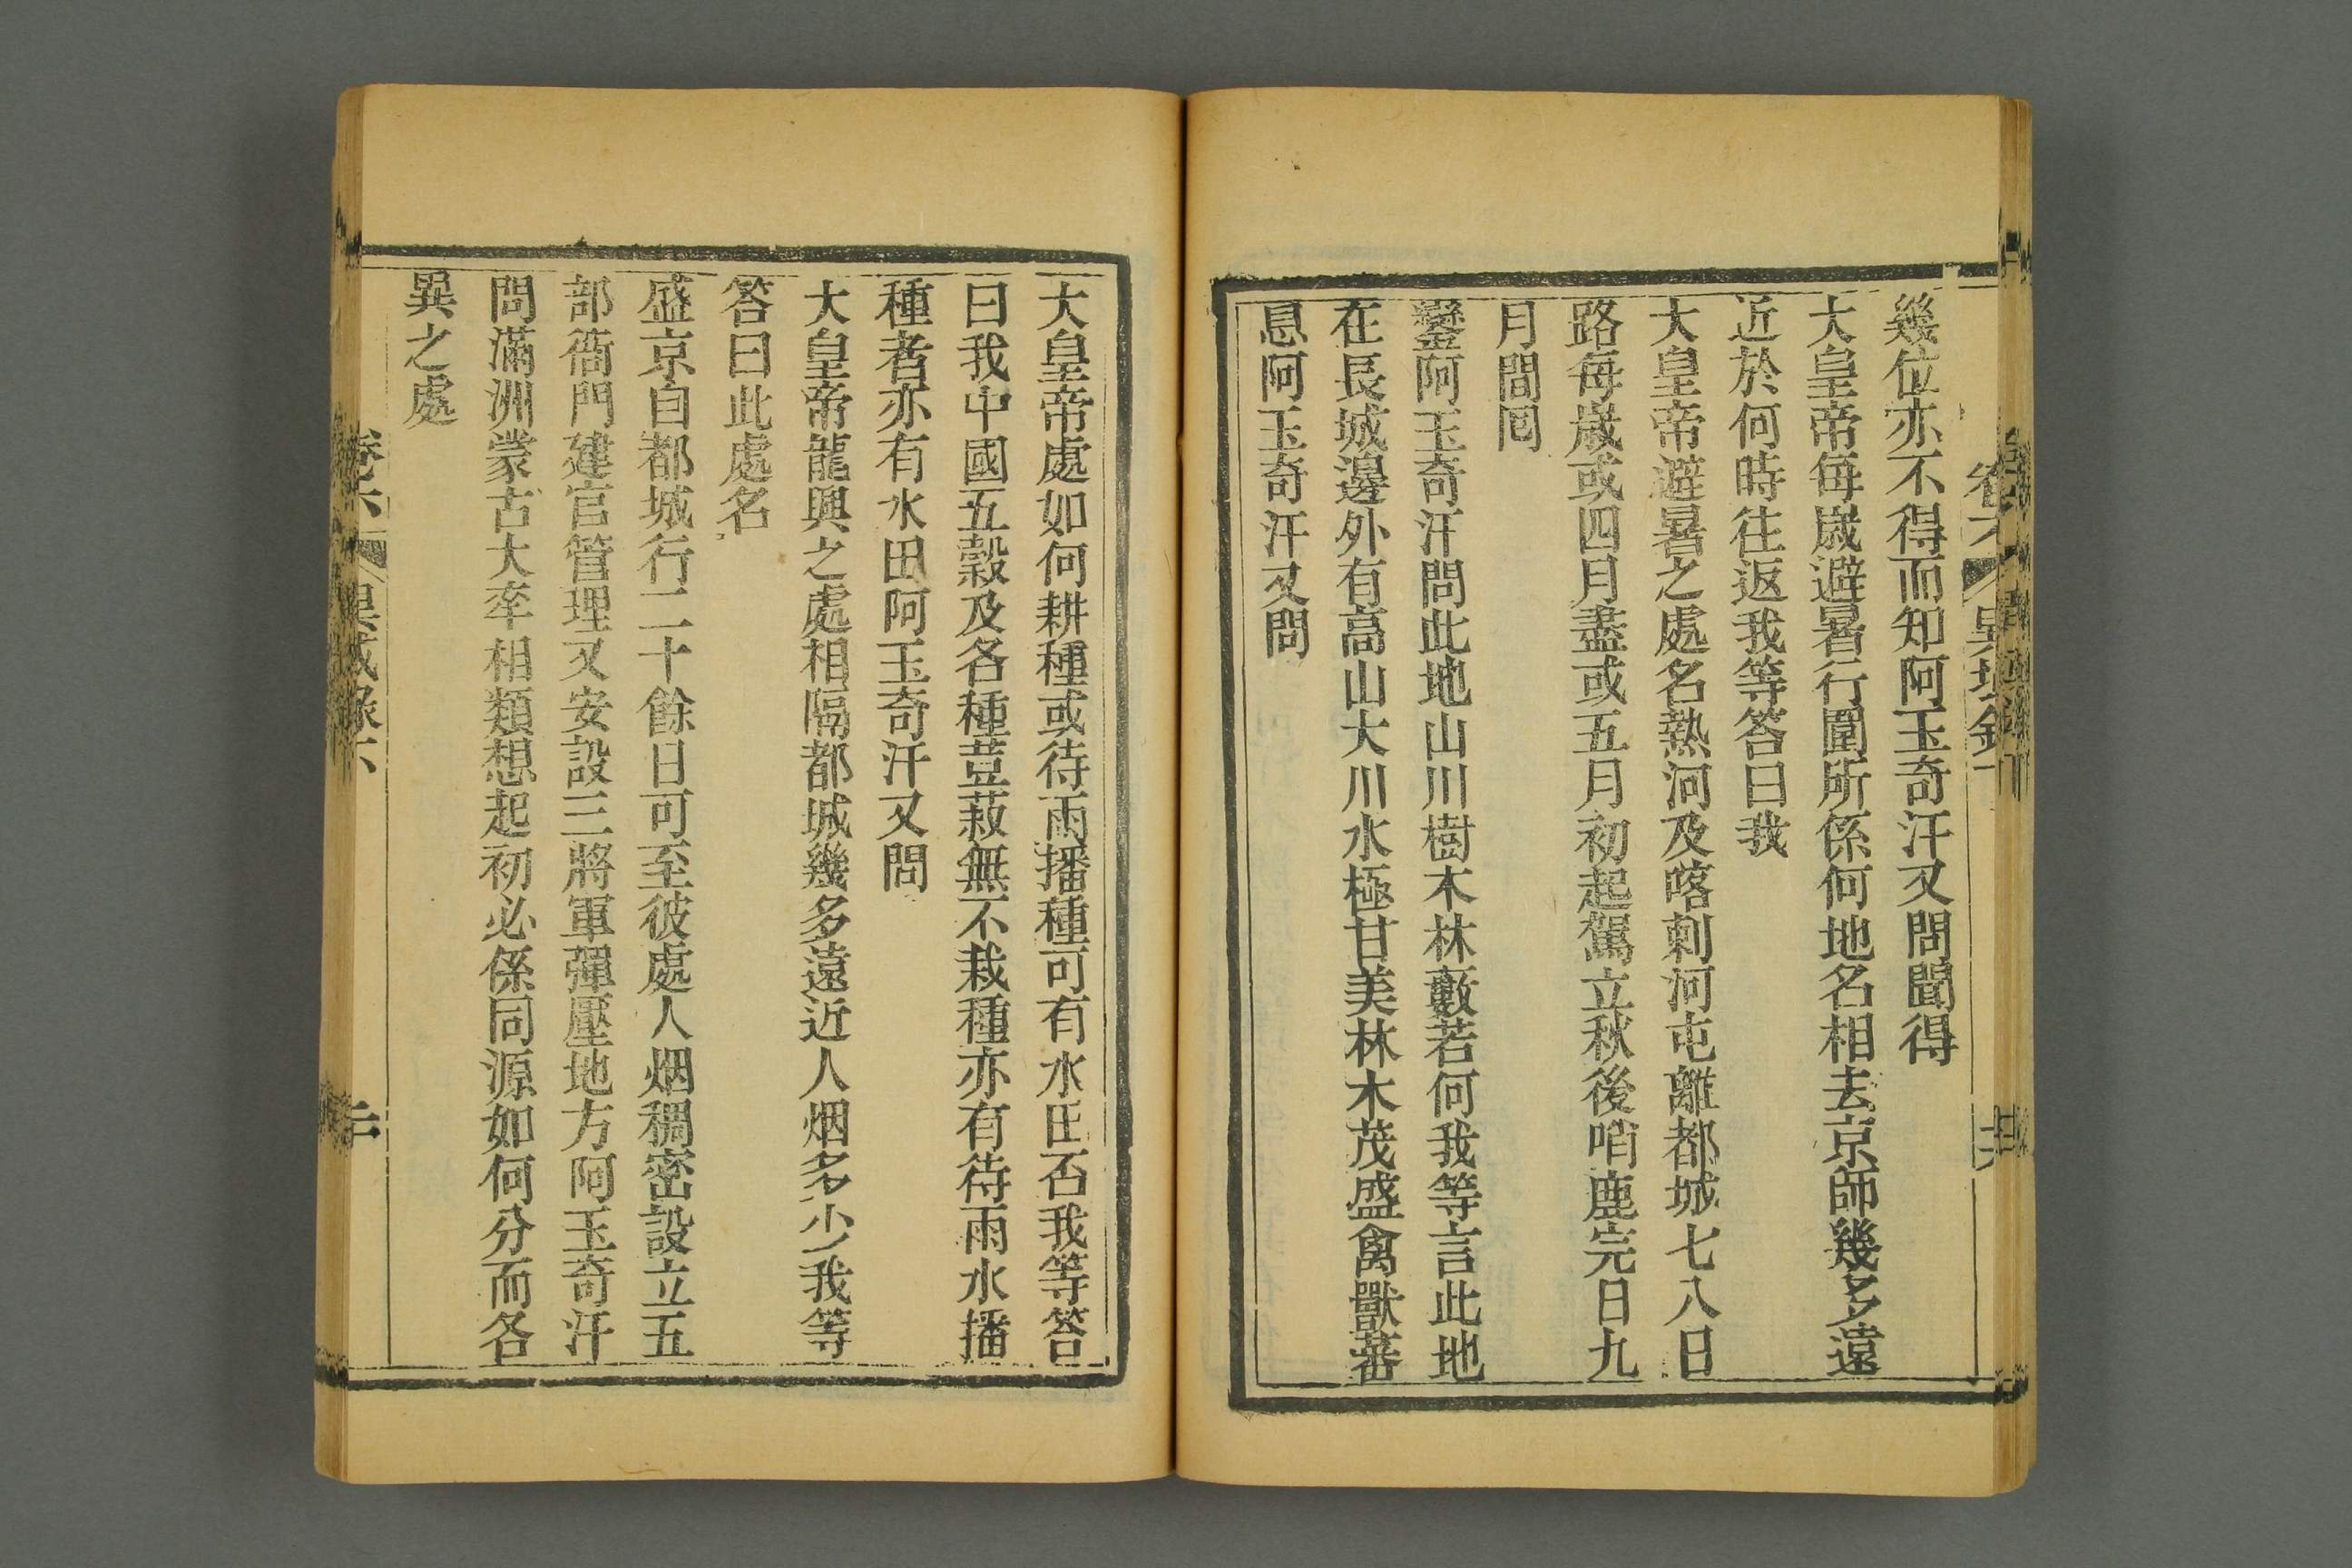 幾位亦不得而知阿玉奇汗又問聞得
大皇帝每歲避暑行圍所係何地名相去京師幾多遠
近於何時往返我等答曰我
大皇帝避暑之處名熱河及喀剌河屯離都城七八日
路每歲或四月盡或五月初起駕立秋後哨鹿完日九
月間囘
鑾阿玉奇汗問此地山川樹木林藪若何我等言此地
在長城邊外有高山大川水極甘美林木茂盛禽獸蕃
息阿玉奇汗又問
大皇帝處如何耕種或待雨播種可有水田否我等答
曰我中國五穀及各種荳菽無不栽種亦有待雨水播
種者亦有水田阿玉奇汗又問
大皇帝龍興之處相隔都城幾多遠近人烟多少我等
答曰此處名
盛京自都城行二十餘日可至彼處人烟稠密設立五
部衙門建官管理又安設三將軍彈壓地方阿玉奇汗
問滿洲蒙古大率相類想起初必係同源如何分而各
異之處
卷六 異域錄下